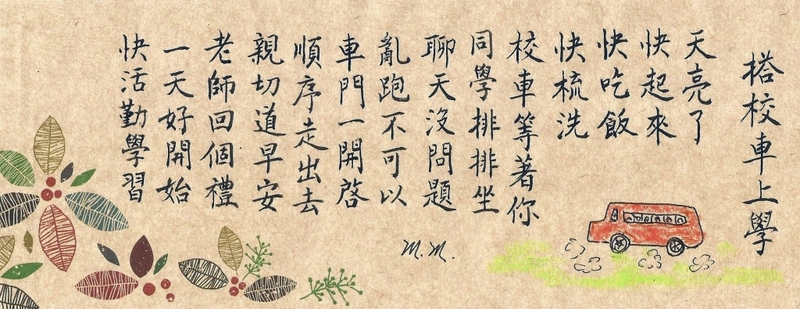 搭校車上學
天亮了
快起來
快吃飯
快梳洗
校車等著你
同學排排坐
聊天沒問題
亂跑不可以
車門一開啓
順序走出去
親切道早安
老師回個禮
一天好開始
快活勤學習
M.M.